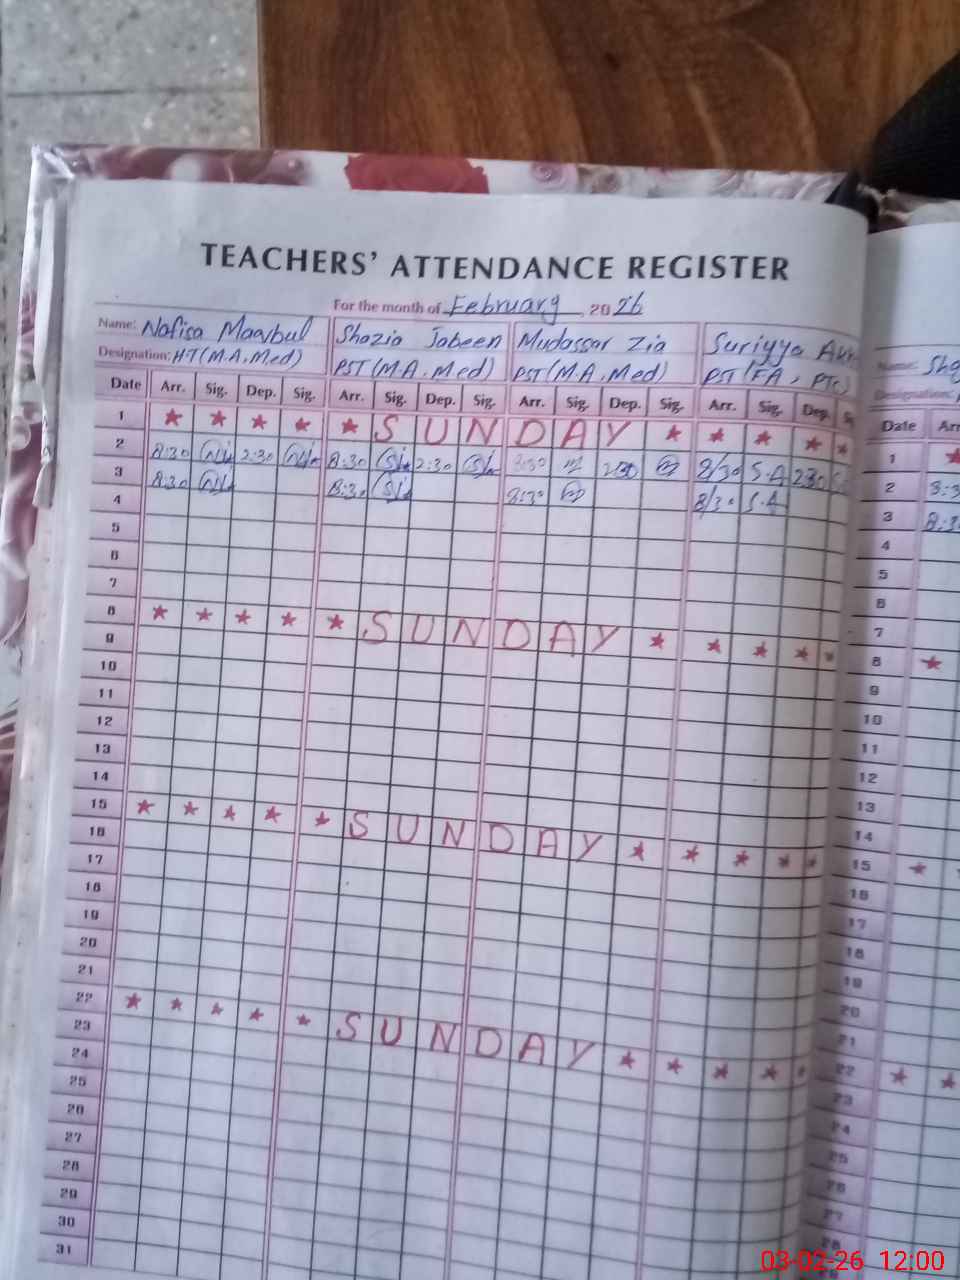 TEACHERS' ATTENDANCE REGISTER
For the month of February, 2026
Name: Nafisa Maqbul Shazia Jabeen Mudassar Zia Suriyya
Designation: HT (M.A, M.ed) PST (M.A, M.ed) PST (M.A, M.ed) PST (FA, PTC)
Date Arr. Sig. Dep. Sig. Arr. Sig. Dep. Sig. Arr. Sig. Dep. Sig. Arr. Sig. Dep. Sig.
1 ★ ★ ★ ★ ★ S U N D A Y ★ ★ ★ ★ ★
2 8:30 2:30 8:30 2:30 8:30 2:30 8/30 S.A 2:30
3 8:30 8:30 8:30 8/30 S.A
4
5
6
7
8 ★ ★ ★ ★ ★ S U N D A Y ★ ★ ★ ★ ★
9
10
11
12
13
14
15 ★ ★ ★ ★ ★ S U N D A Y ★ ★ ★ ★ ★
16
17
18
19
20
21
22 ★ ★ ★ ★ ★ S U N D A Y ★ ★ ★ ★ ★
23
24
25
26
27
28
29
30
31
Name:
Designation:
Date Arr
1 ★
2
3
4
5
6
7
8 ★
9
10
11
12
13
14
15 ★
16
17
18
19
20
21
22 ★ ★
23
24
25
26
27
28
03-02-26 12:00